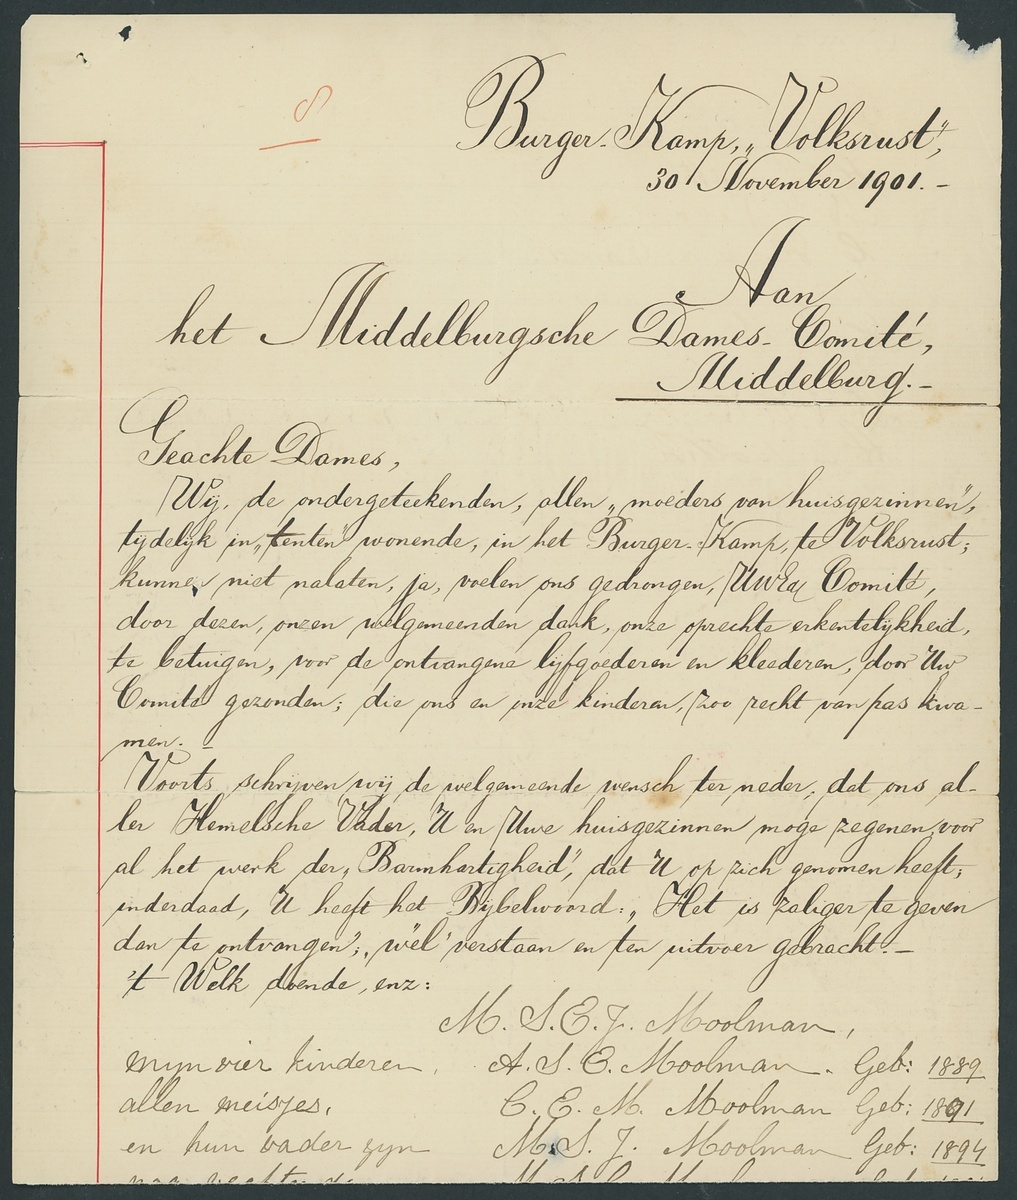 8
Burger-Kamp, „Volksrust",
30 November 1901. -
Aan
het Middelburgsche Dames-Comité,
Middelburg. -
Geachte Dames,
Wij, de ondergeteekenden, allen „moeders van huisgezinnen",
tijdelijk in „tenten" wonende, in het Burger-Kamp, te Volksrust;
kunnen niet nalaten, ja, voelen ons gedrongen, Comité,
door dezen, onzen welgemeenden dank, onze oprechte erkentelijkheid,
te betuigen, voor de ontvangene lijfgoederen en kleederen, door Uw
Comité gezonden; die ons en onze kinderen, zoo recht van pas kwa-
men. -
Voorts, schrijven wij de welgemeende wensch ter neder, dat ons al-
ler Hemelsche Vader, U en Uwe huisgezinnen moge zegenen, voor
al het werk der „Barmhartigheid", dat U op zich genomen heeft;
inderdaad, U heeft het Bijbelwoord: „Het is zaliger te geven
dan te ontvangen"; „wèl" verstaan en ten uitvoer gebracht. -
't Welk doende, enz:
M. S. E. J. Moolman,
mijn vier kinderen, A. S. C. Moolman. Geb: 1889
allen meisjes, C. E. M. Moolman Geb: 1891
en hun vader zyn M. S. J. Moolman Geb: 1894